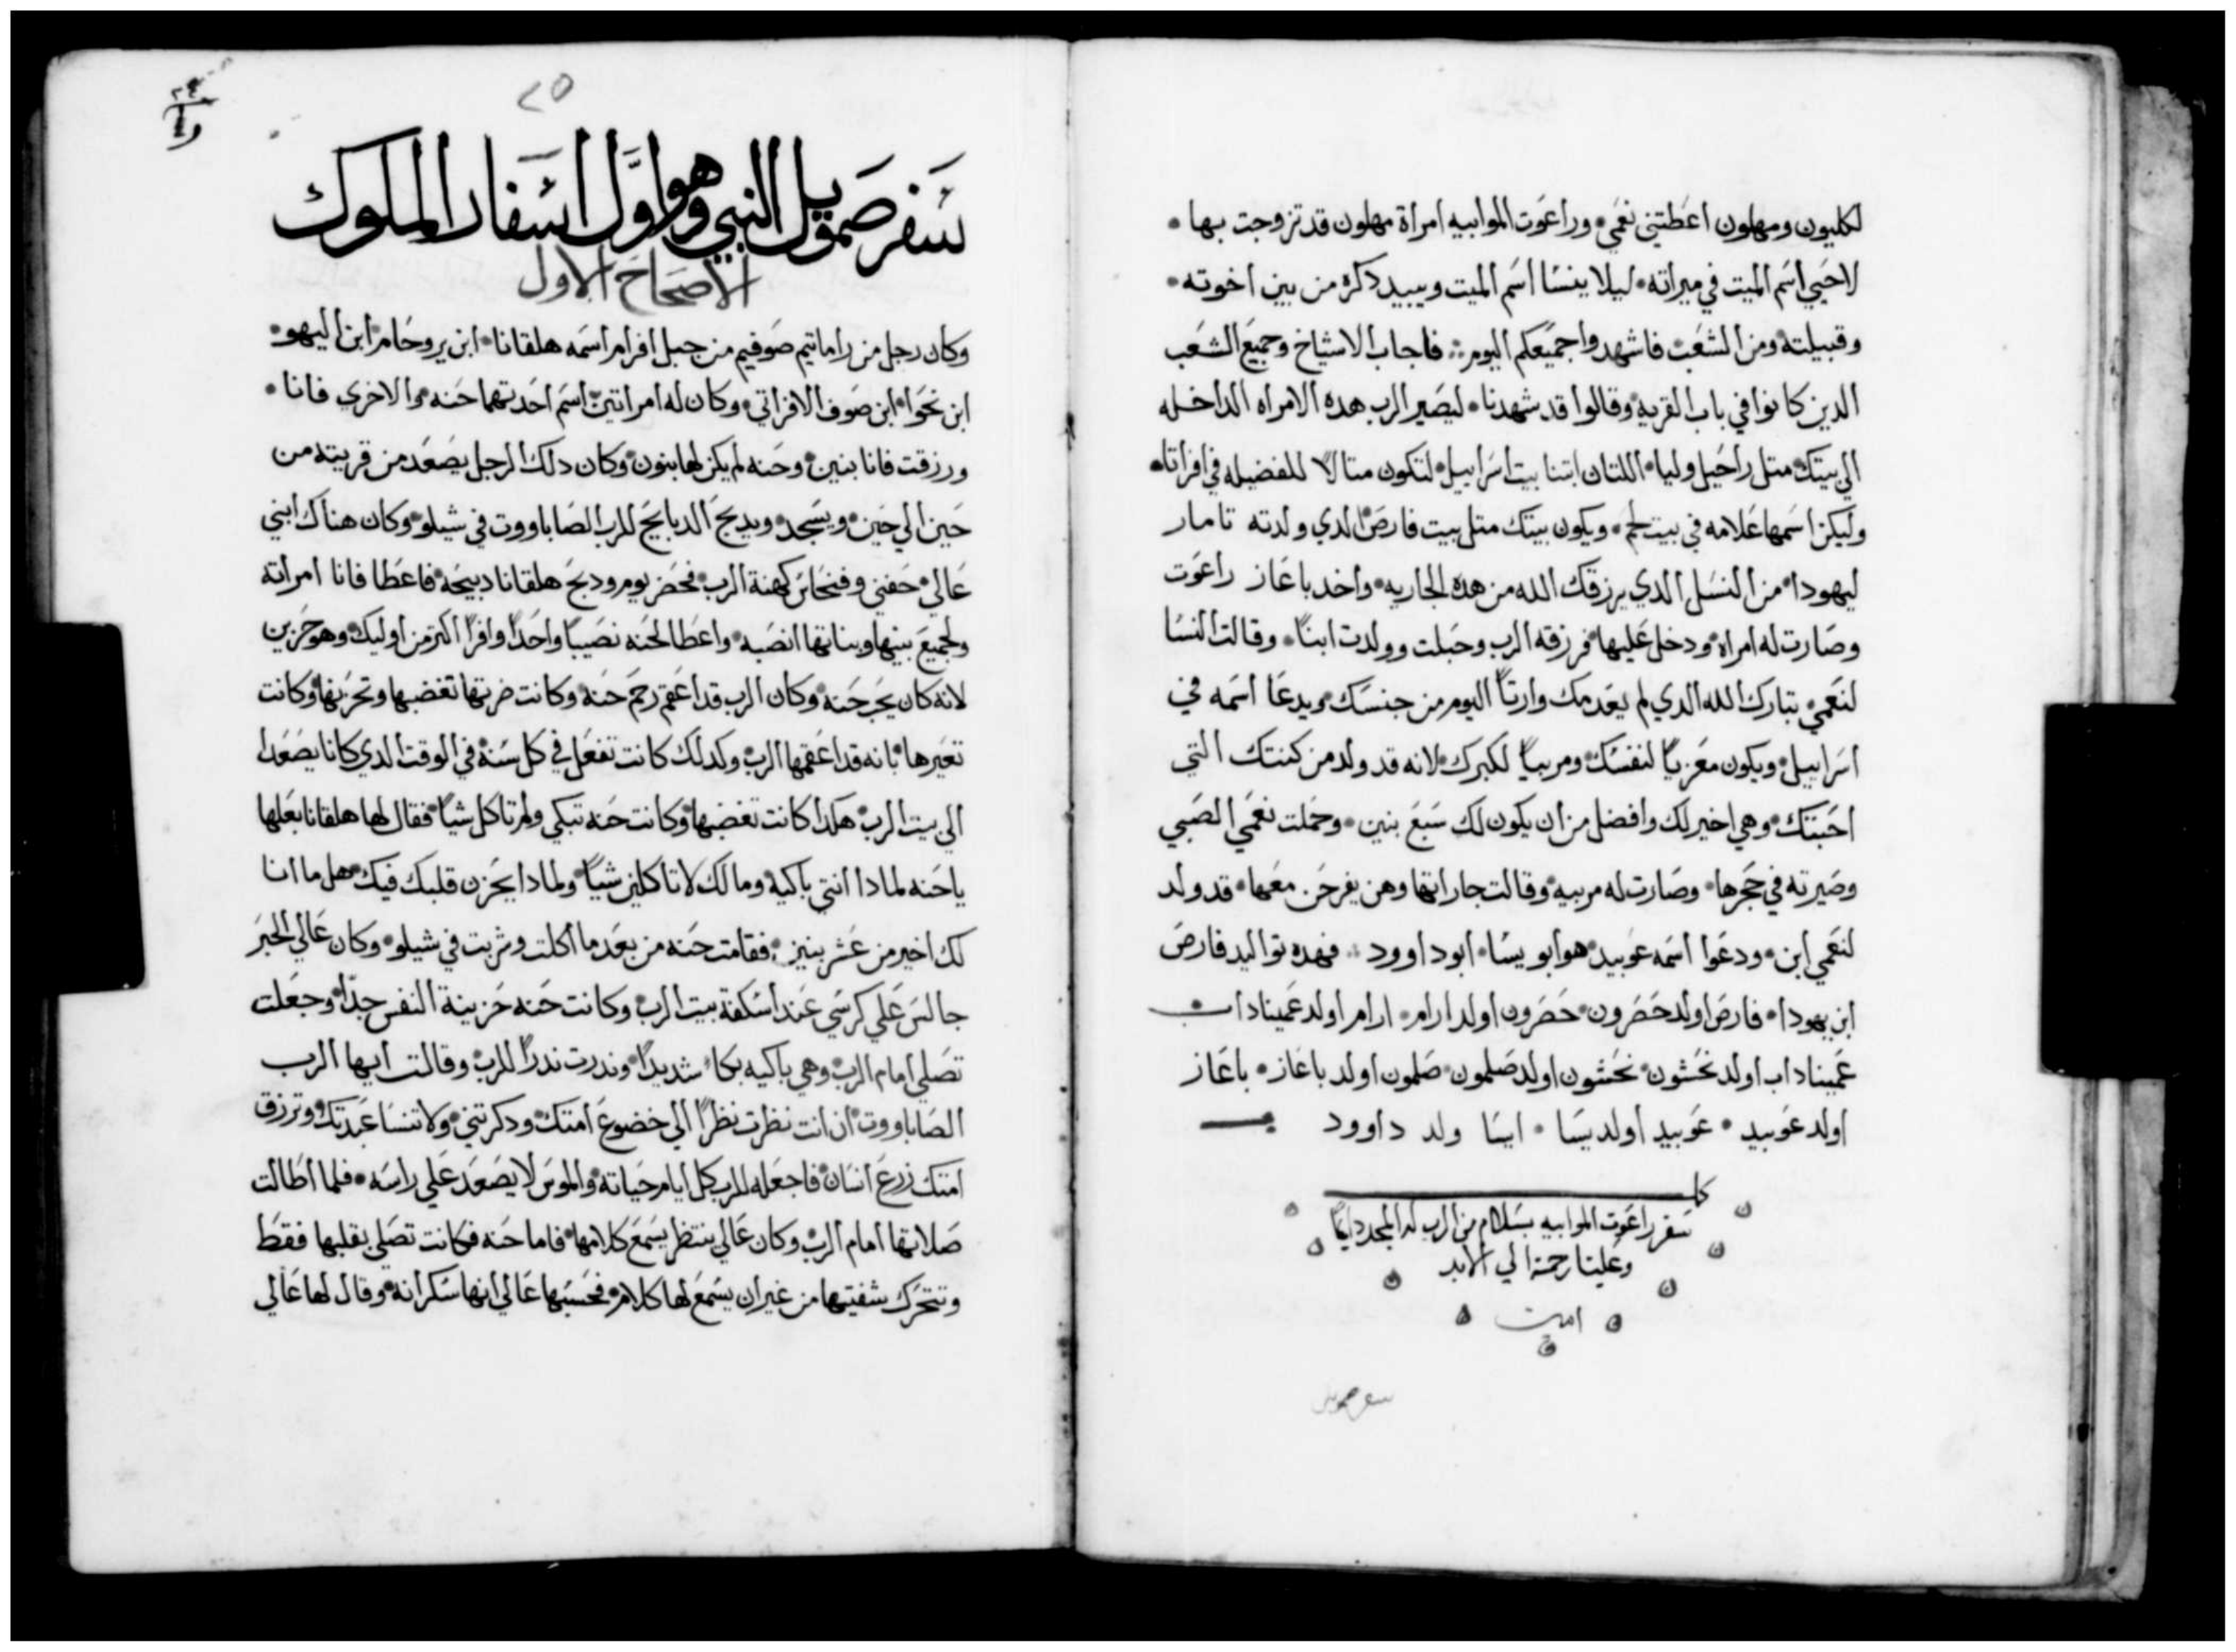 لكليون ومهلون اعطتني نعمي٠ وراعوت الموابيه امراة مهلون قد تزوجت بها٠
لاحيي اسم الميت في ميراته٠ ليلا ينسا اسم الميت ويبيد دكره من بين اخوته٠
وقبيلته ومن الشعب٠ فاشهدوا جميعكم اليوم ܀ فاجاب الاشياخ وجميع الشعب
الدين كانوا في باب القريه٠ وقالوا قد شهدنا٠ ليصير الرب هده الامراه الداخله
الي بيتك٠ متل راحيل وليا٠ اللتان ابتنا بيت اسراييل٠ لتكون متالاً للفضيله في افراتا٠
وليكن اسمها علامه في بيت لحم٠ ويكون بيتك متل بيت فارص الدي ولدته تامار
ليهودا٠ من النسل الدي يرزقك الله من هده الجاريه٠ واخد باعاز راعوت
وصارت له امراه٠ ودخل عليها٠ فرزقه الرب وحبلت وولدت ابناً٠ وقالت النسا
لنعمي٠ تبارك الله الدي لم يعدمك وارتاً اليوم من جنسك٠ ويدعا اسمه في
اسراييل٠ ويكون معزياً لنفسك٠ ومربياً لكبرك٠ لانه قد ولد من كنتك التي
احبتك٠ وهي اخير لك وافضل من ان يكون لك سبع بنين٠ وحملت نعمي الصبي
وصيرته في حجرها٠ وصارت له مربيه٠ وقالت جاراتها وهن يفرحن معها٠ قد ولد
لنعمي ابن٠ ودعوا اسمه عوبيد٠ هو ابو يسا٠ ابو داوود ܀ فهده تواليد فارص
ابن يهودا٠ فارص اولد حصرون٠ حصرون اولد ارام٠ ارام اولد عميناداب
عميناداب اولد نحشون٠ نحشون اولد صلمون٠ صلمون اولد باعاز٠ باعاز
اولد عوبيد٠ عوبيد اولد يسا٠ ايسا ولد داوود
كمل
سفر راعوت الموابيه بسلام من الرب له المجد دايماً
وعلينا رحمته الي الابد
امين
سفر صمويل
٢٥
سفر صمويل النبي وهو اول اسفار الملوك
الاصحاح الاول
وكان رجل من راماتيم صوفيم من جبل افرام اسمه هلقانا٠ ابن يروحام٠ ابن اليهو٠
ابن نحوا٠ ابن صوف الافراتي٠ وكان له امراتين٠ اسم احدتهما حنه٠ والاخري فانا٠
ورزقت فانا بنين٠ وحنه لم يكن لها بنون٠ وكان دلك الرجل يصعد من قريته من
حين الي حين٠ ويسجد٠ ويدبح الدبايح للرب الصاباووت في شيلو٠ وكان هناك ابني
عالي٠ حفني وفنحاس كهنة الرب٠ فحضر يوم ودبح هلقانا دبيحه٠ فاعطا فانا امراته
ولجميع بنيها وبناتها انصبه٠ واعطا لحنه نصيباً واحداً وافراً اكتر من اوليك٠ وهو حزين
لانه كان يحب حنه٠ وكان الرب قد اعقم رحم حنه٠ وكانت ضرتها تغضبها وتحزنها٠ وكانت
تعيرها٠ بانه قد اعقمها الرب٠ وكدلك كانت تفعل في كل سنة٠ في الوقت الدي كانا يصعدا
الي بيت الرب٠ هكدا كانت تغضبها٠ وكانت حنه تبكي ولم تاكل شياً٠ فقال لها هلقانا بعلها
يا حنه لمادا انتي باكيه٠ وما لك لا تاكلين شياً٠ ولمادا يحزن قلبك فيك٠ هل ما انا
لك اخير من عشر بنين܀ فقامت حنه من بعد ما اكلت وشربت في شيلو٠ وكان عالي الحبر
جالس علي كرسي عند اسكفة بيت الرب٠ وكانت حنه حزينة النفس جداً٠ وجعلت
تصلي امام الرب٠ وهي باكيه بكاء شديداً٠ وندرت ندراً للرب٠ وقالت ايها الرب
الصاباووت٠ ان انت نظرت نظراً الي خضوع امتك٠ ودكرتني٠ ولا تنسا عبدتك٠ وترزق
امتك زرع انسان٠ فاجعله للرب كل ايام حياته٠ والموس لا يصعد علي راسه٠ فلما اطالت
صلاتها امام الرب٠ وكان عالي ينتظر يسمع كلامها٠ فاما حنه فكانت تصلي بقلبها فقط
وتتحرك شفتيها من غير ان يسمع لها كلام٠ فحسبها عالي انها سكرانه٠ وقال لها عالي